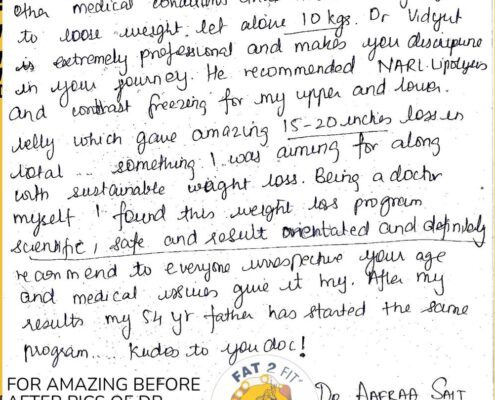 other medical conditions
to loose weight, let alone 10 kgs. Dr Vidyut
is extremely professional and makes you discipline
in your journey. He recommended NARL. Lipolysis
and contrast freezing for my upper and lower
belly which gave amazing 15-20 inches loss in
total ... something I was aiming for along
with sustainable weight loss. Being a doctor
myself I found this weight loss program
scientific, safe and result orientated and definitely
recommend to everyone irrespective your age
and medical issues give it try. After my
results my 54 yr father has started the same
program.... Kudos to you doc!
FAT 2 FIT
FOR AMAZING BEFORE
AFTER PICS OF DR
Dr AAFRAA SAIT